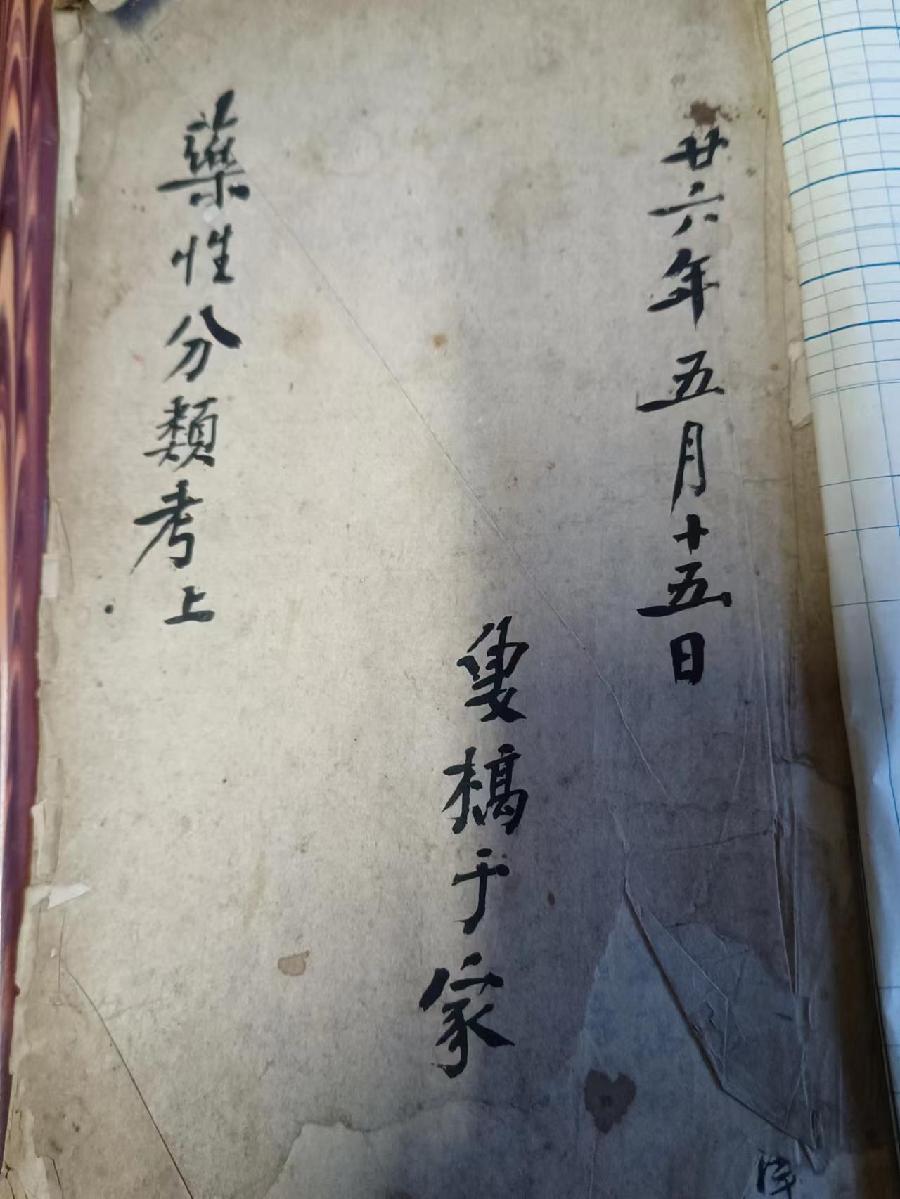 廿六年五月十五日
槁于家
藥性分類考上